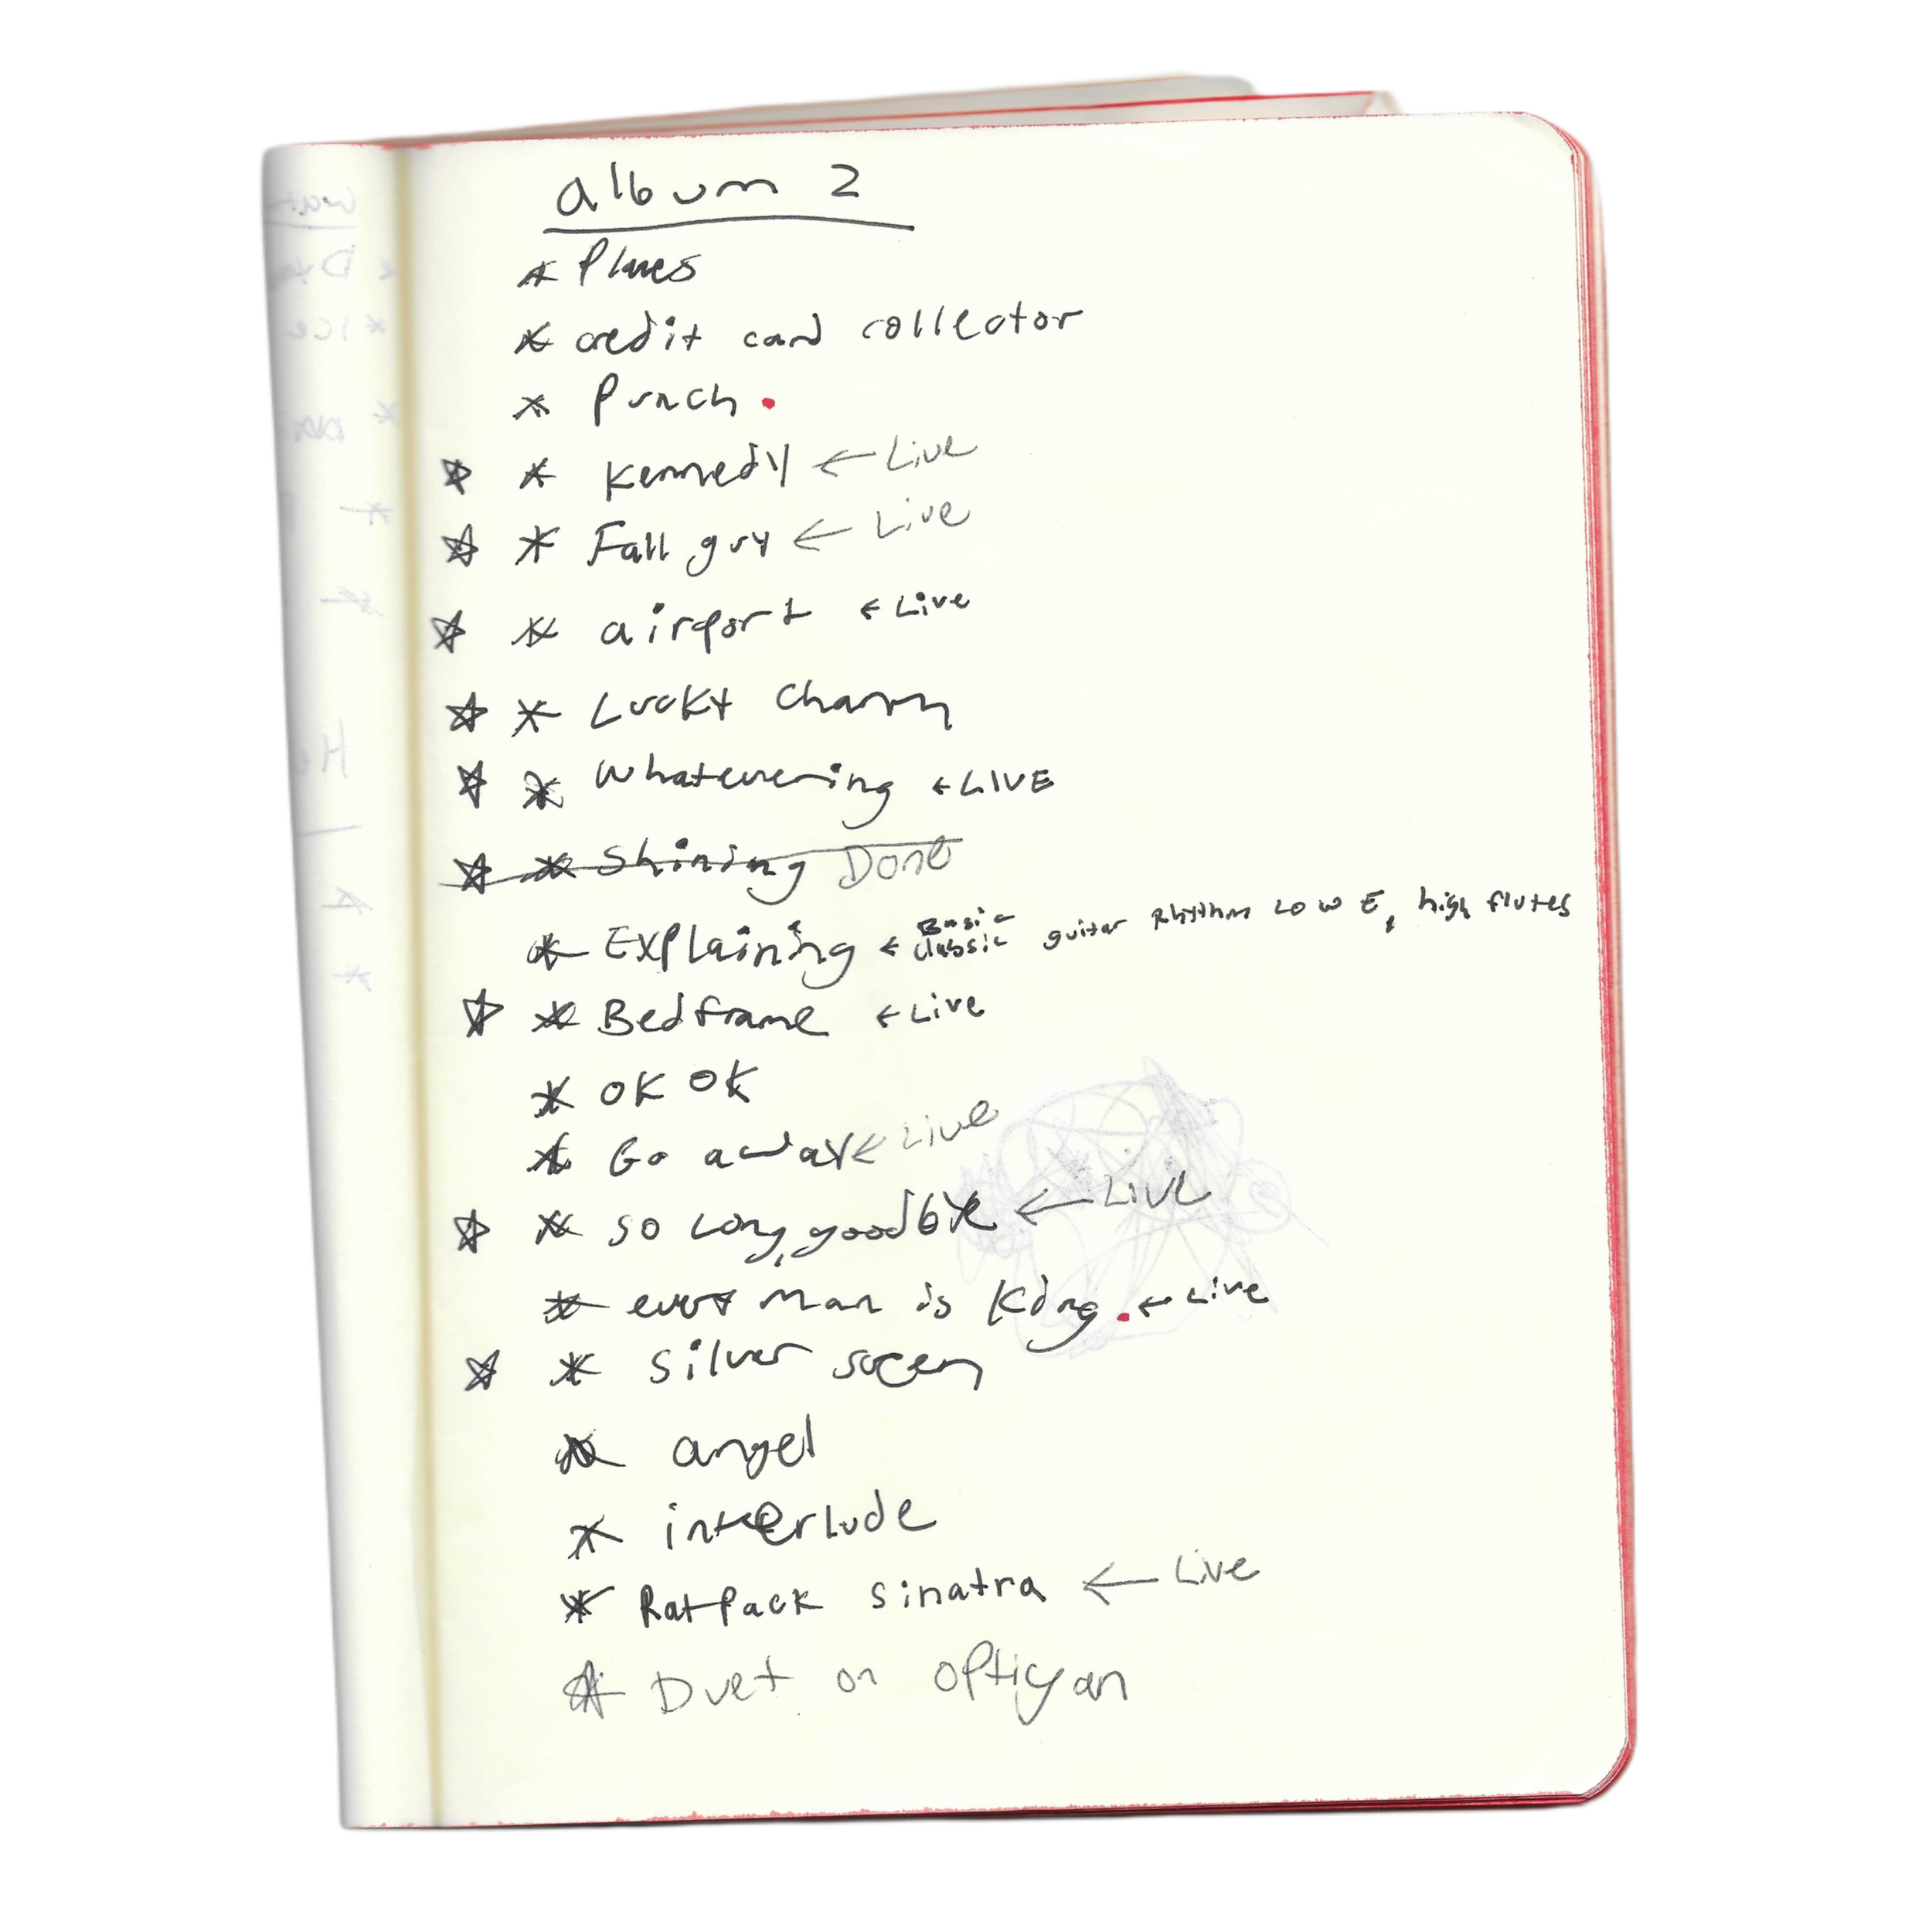 album 2
* Planes
* credit card collector
* Punch
☆ * Kennedy ← Live
☆ * Fall guy ← Live
☆ * airport ← Live
☆ * Lucky charm
☆ * Whatevering ← LIVE
☆ * Shining Done
* Explaining ← Basic classic guitar rhythm LOW E, high flutes
☆ * Bedframe ← Live
* OK OK
* Go away ← Live
☆ * so Long, goodbye ← Live
* every man is King. ← Live
☆ * silver
* angel
* interlude
* RatPack sinatra ← Live
* Duet on optigan